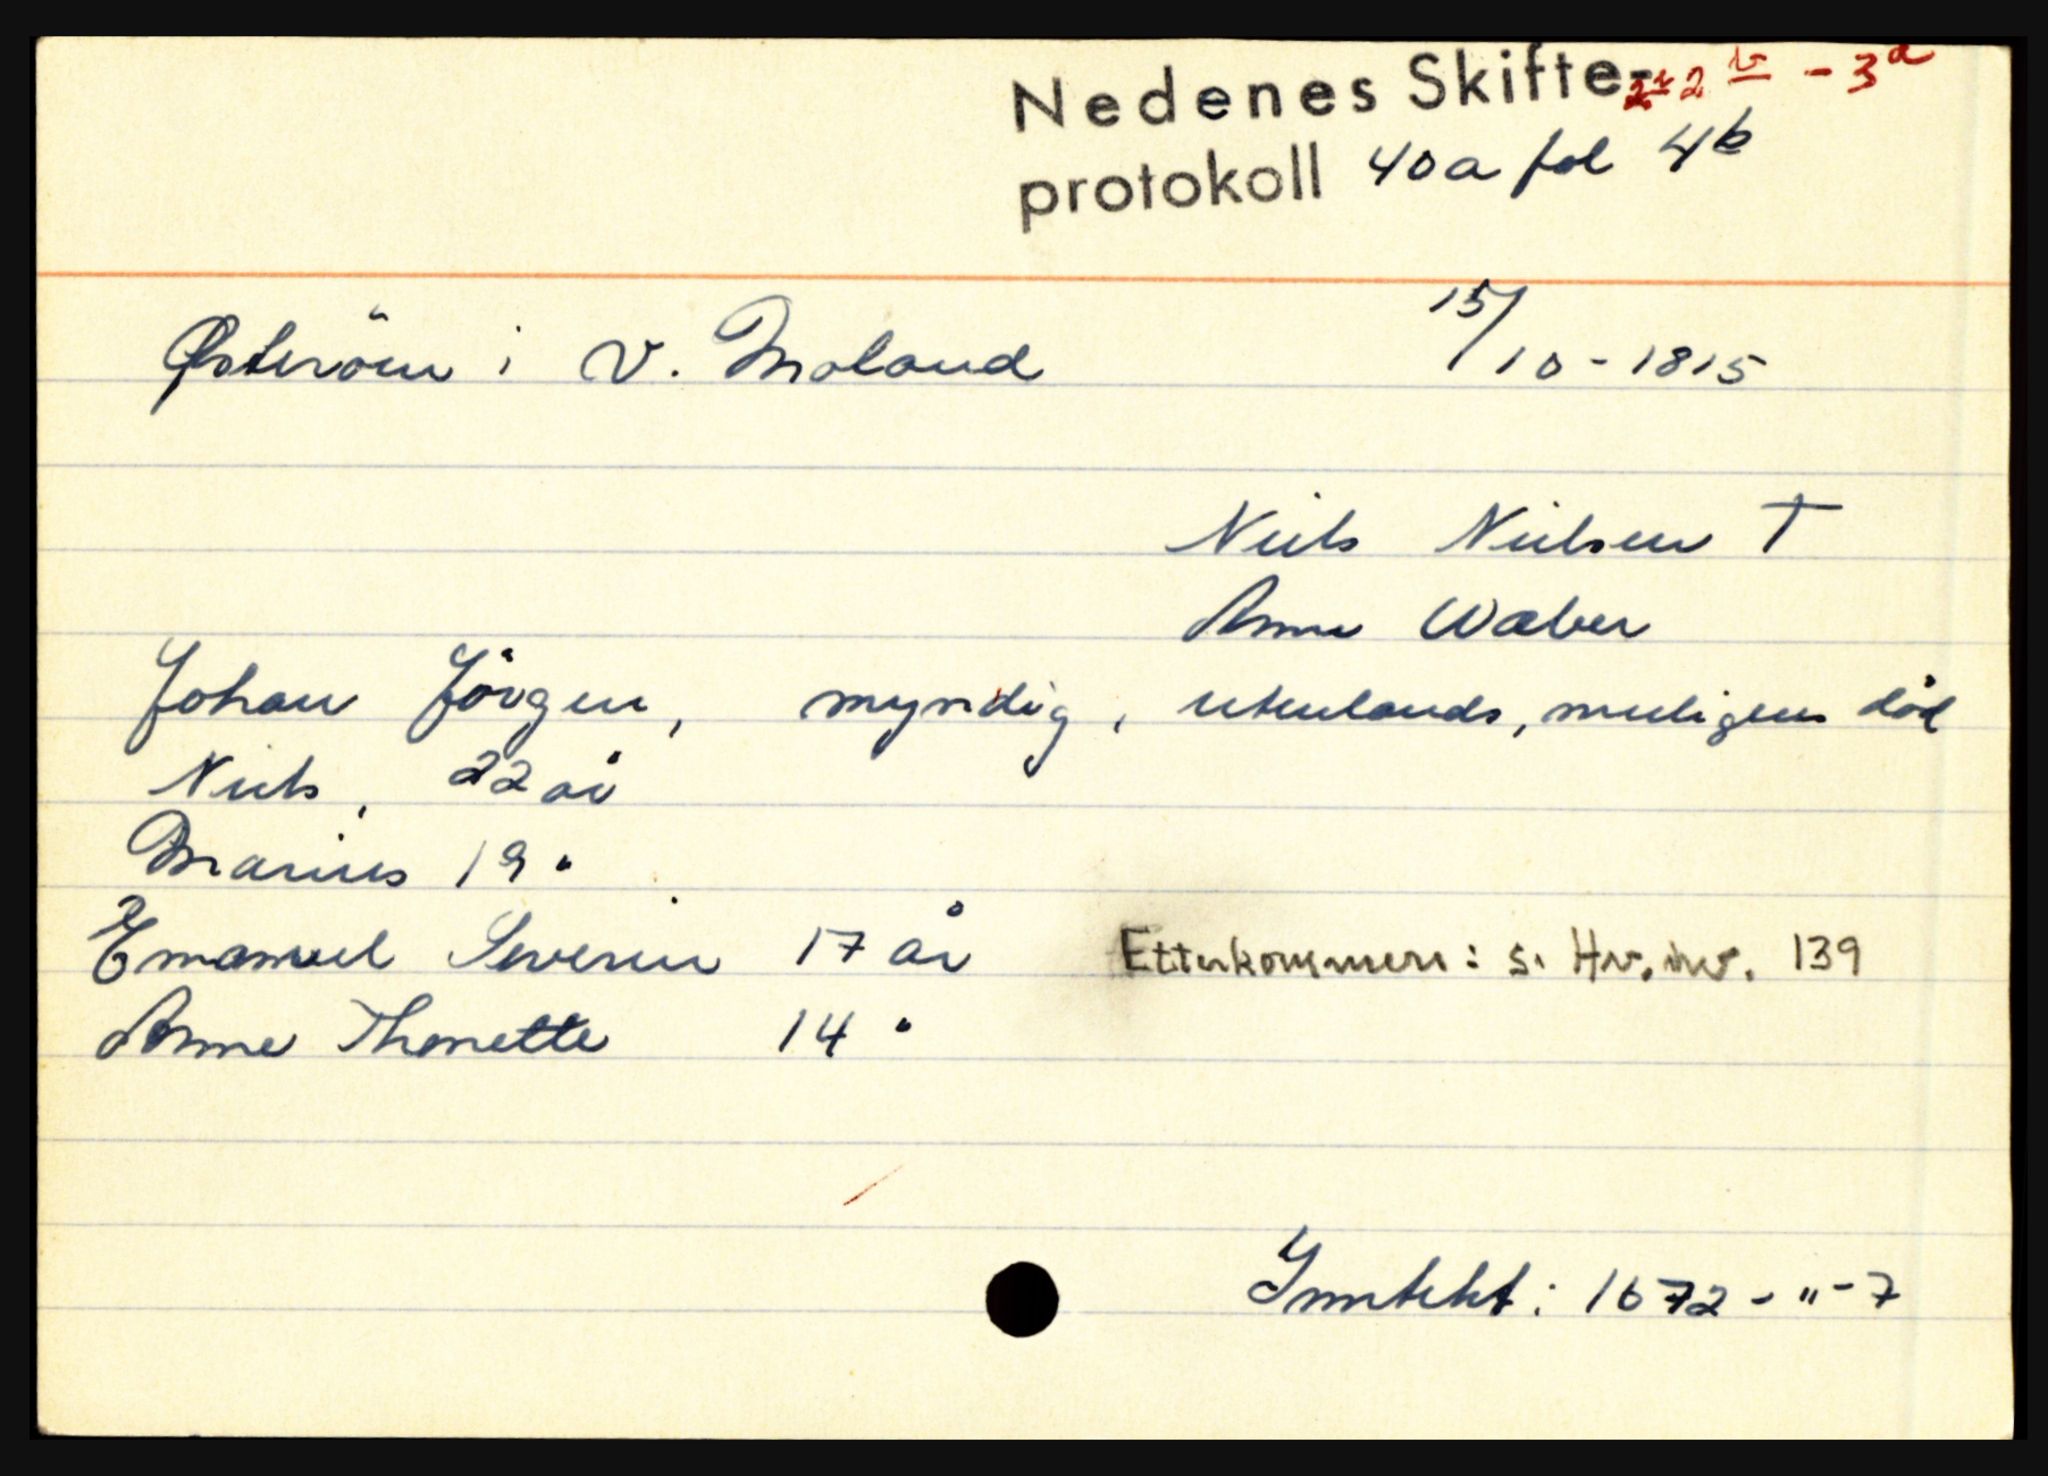 Nedenes Skifte- 2 b - 3 a
protokoll 40a fol 4b
Østeröen i V. Moland 15/10-1815
Niels Nielsen †
Anne Wæber
Johan Jörgen, myndig, utenlands, muligens död
Niels, 22 år
Marius 19 "
Emanuel Severin 17 år Etterkommere: s. Hv. inv. 139
Anne Thonette 14 "
Inntekt: 1672 - " - 7